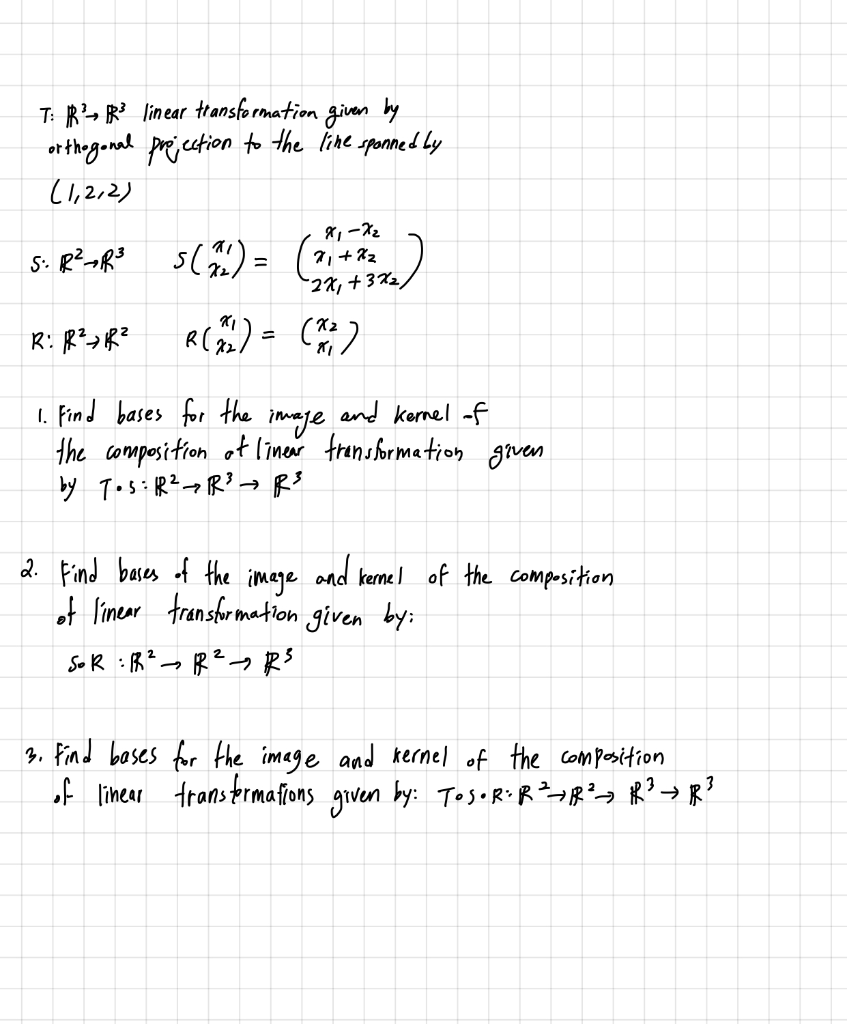 T: ℝ³→ ℝ³ linear transformation given by
orthogonal projection to the line spanned by
(1,2,2)
S: ℝ²→ℝ³ S(x₁ x₂) = (x₁-x₂ x₁+x₂ 2x₁+3x₂)
R: ℝ²→ℝ² R(x₁ x₂) = (x₂ x₁)
1. Find bases for the image and kernel of
the composition of linear transformation given
by T∘S: ℝ²→ℝ³→ ℝ³
2. Find bases of the image and kernel of the composition
of linear transformation given by:
S∘R : ℝ²→ ℝ²→ ℝ³
3. Find bases for the image and kernel of the composition
of linear transformations given by: T∘S∘R: ℝ²→ℝ²→ ℝ³→ ℝ³